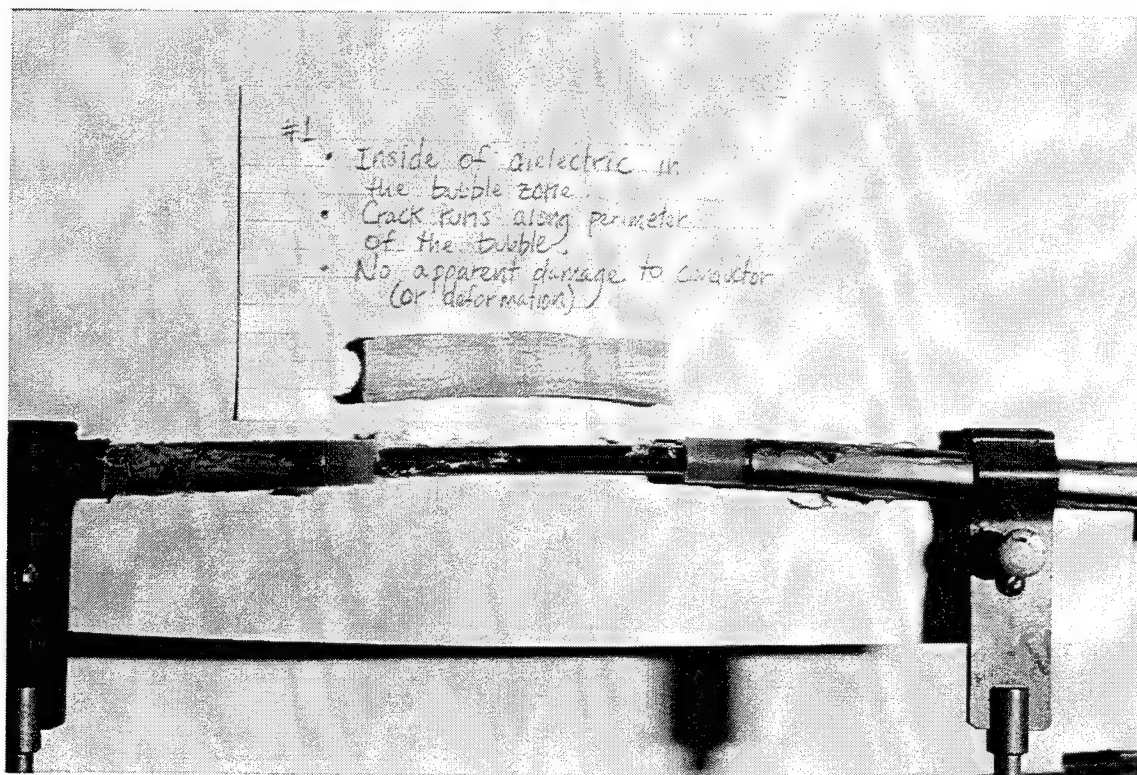 #1
• Inside of dielectric in
the bubble zone
• Crack runs along perimeter
of the bubble
• No apparent damage to conductor
(or deformation)